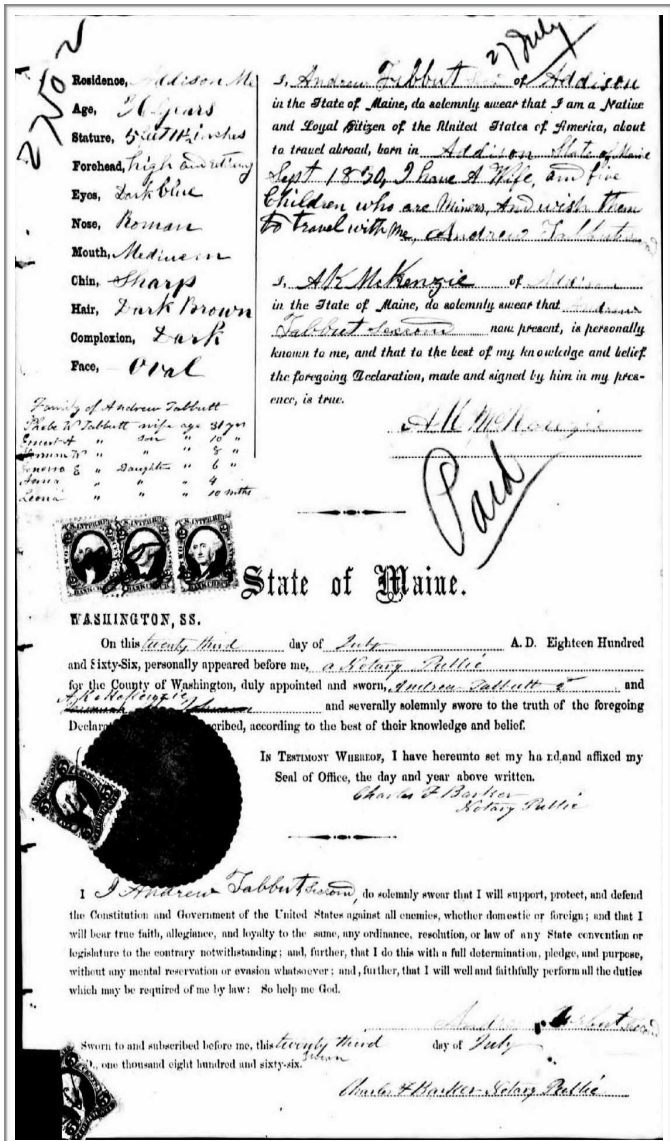 27502
27 July
Residence, Addison Me
Age, 36 years
Stature, 5 feet 11 1/2 inches
Forehead, high and retiring
Eyes, Dark blue
Nose, Roman
Mouth, Medium
Chin, Sharp
Hair, Dark Brown
Complexion, Dark
Face, Oval
Family of Andrew Tabbutt
Phebe W Tabbutt wife age 31 yrs
Ernest A " Son " 10 "
" " " 8 "
Geneva E " Daughter " 6 "
Anna " " " 4
Leonia " " " 10 mths
I, Andrew Tabbut of Addison
in the State of Maine, do solemnly swear that I am a Native
and Loyal Citizen of the United States of America, about
to travel abroad, born in Addison State of Maine
Sept 1830, I have A Wife, and five
Children who are Minors, And wish them
to travel with Me, Andrew Tabbut
I, A K McKenzie of
in the State of Maine, do solemnly swear that Andrew
Tabbut Second now present, is personally
known to me, and that to the best of my knowledge and belief
the foregoing Declaration, made and signed by him in my pres-
ence, is true.
A K McKenzie
Paid
State of Maine.
WASHINGTON, SS.
On this twenty third day of July A. D. Eighteen Hundred
and Sixty-Six, personally appeared before me, a Notary Public
for the County of Washington, duly appointed and sworn, Andrew Tabbutt 2 and
A K McKenzie and severally solemnly swore to the truth of the foregoing
Declara cribed, according to the best of their knowledge and belief.
IN TESTIMONY WHEREOF, I have hereunto set my hand and affixed my
Seal of Office, the day and year above written.
Charles F Barker
Notary Public
I I Andrew Tabbut Second, do solemnly swear that I will support, protect, and defend
the Constitution and Government of the United States against all enemies, whether domestic or foreign; and that I
will bear true faith, allegiance, and loyalty to the same, any ordinance, resolution, or law of any State convention or
legislature to the contrary notwithstanding; and, further, that I do this with a full determination, pledge, and purpose,
without any mental reservation or evasion whatsoever; and, further, that I will well and faithfully perform all the duties
which may be required of me by law: So help me God.
Andrew Tabbut Second
Sworn to and subscribed before me, this twenty third day of July
one thousand eight hundred and sixty-six.
Charles F Barker Notary Public